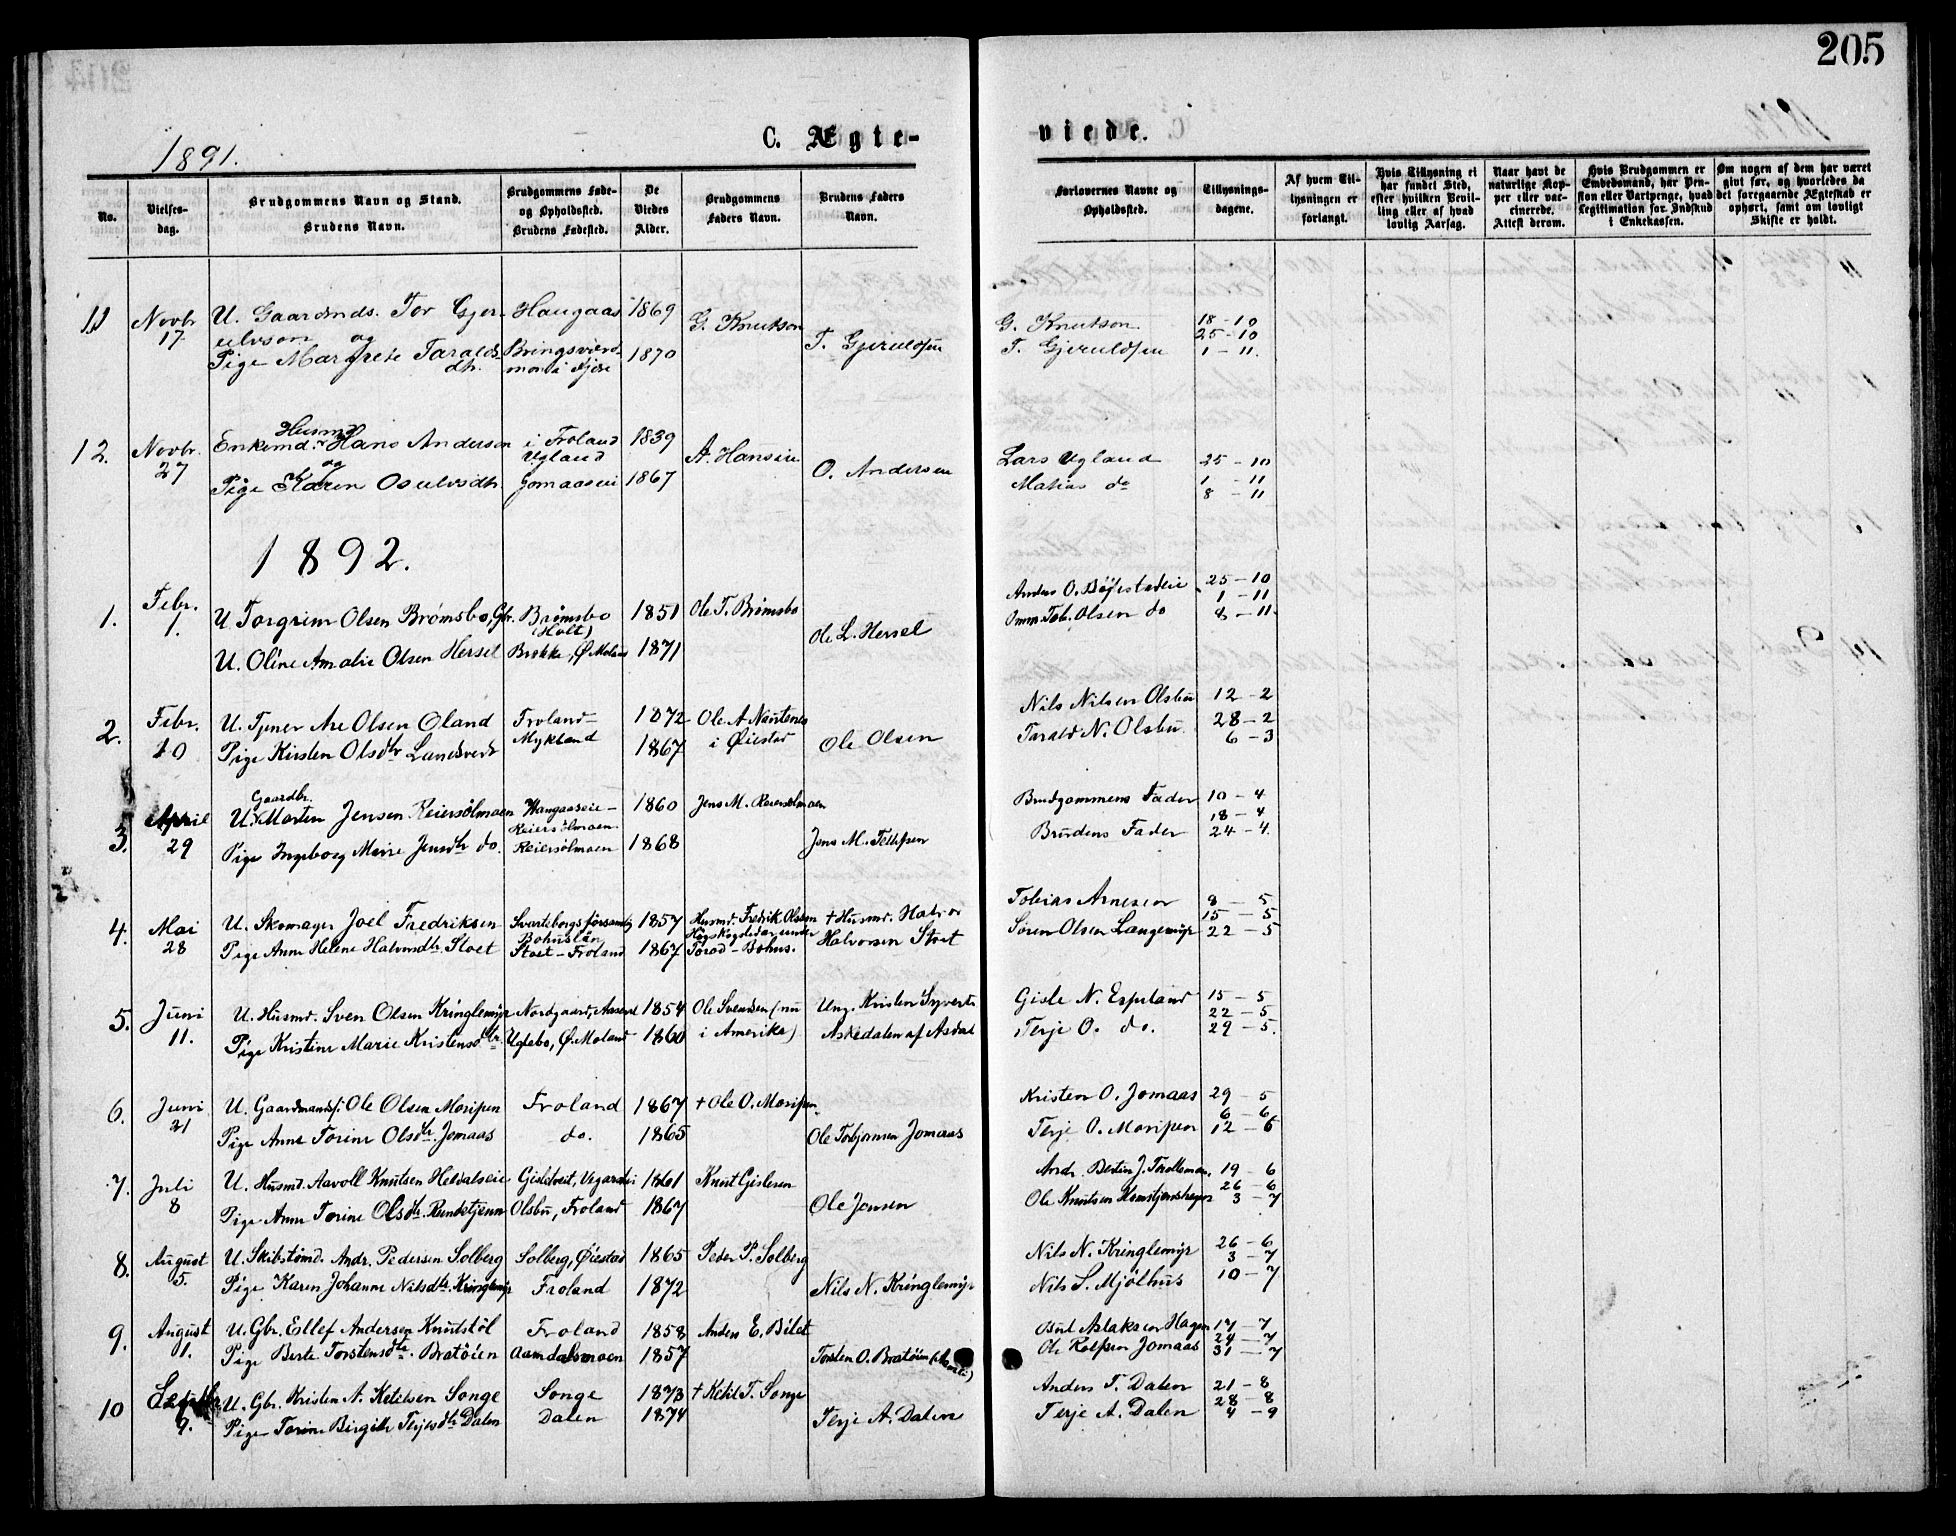 205
1891.
C. Ægte-
viede.
No.
Vielses-
dag.
Brudgommens Navn og Stand.
Brudens Navn.
Brudgommens Føde-
og Opholdssted.
Brudens Fødested.
De
Viedes
Alder.
Brudgommens
Faders Navn.
Brudens Faders
Navn.
Forlovernes Navne og
Opholdssted.
Tillysnings-
dagene.
Af hvem Til-
lysningen er
forlangt.
Hvis Tillysning ei
har fundet Sted,
efter hvilken Bevil-
ling eller af hvad
lovlig Aarsag.
Naar havt de
naturlige Kop-
per eller vac-
cinerede.
Attest derom.
Hvis Brudgommen er
Embedsmand, har Pen-
sion eller Vartpenge, hvad
Legitimation for Indskud
i Enkekassen.
Om nogen af dem har været
givt før, og hvorledes da
det foregaaende Ægteskab er
ophørt, samt om lovligt
Skifte er holdt.
11 Novbr. 17. U. Gaardmds. Tor Gjer- Haugaas 1869 G. Knutson G. Knutson 18-10
ulvson og T. Gjeruldsen T. Gjeruldsen 25-10
Pige Margrete Taralds- 1870 1-11.
dh. i
12. Novbr. 27 Enkemd. Husmd Hans Andersen i Froland 1839 A. Hanseie Lars Ugland 25-10
og Ugland O. Andersen 1-11
Pige Karen Osulvsdh. Jomaaseie 1867 Matias do 8-11
1892.
1. Febr. 1. U. Torgrim Olsen Brømsbo, Gbr. Brømsbo 1851 Ole T. Brømsbo Anders O. Bøfestadeie 25-10
(Holt) Ole L. Hersel 1-11
U. Oline Amalie Olsen Hersel Brekke, Ø. Moland 1871 Tob. Olsen do 8-11.
2. Febr. 10 U. Tjener Are Olsen Oland Froland- 1872 Ole A Nautenes Nils Nilsen Olsbu 12-2
28-2
Pige Kirsten Olsdtr Landsverk Mykland 1867 i Øiestad Ole Olsen Tarald N. Olsbu 6-3
3. April 29 Gaardbr.
U. Morten Jensen Reiersølmoen Haugaaseie- 1860 Jens M. Reiersølmoen Brudgommens Fader 10-4
Reiersølmoen 18-4
Pige Ingeborg Marie Jensdtr do. Reiersølmoen 1868 Jens M. Tellefsen Brudens Fader 24-4.
4. Mai 28 U. Skomager Joel Fredriksen Svarteborgs församling 1857 Husmd. Fredrik Olsen + Husmd. Halvor Tobias Arnesen 8-5
Bohuslän under 15-5
Pige Anne Helene Halvorsdtr. Stoet Stoet-Froland 1867 Bohus. Halvorsen Stoet Søren Olsen Langemyr 22-5
5. Juni 11. U. Husmd. Sven Olsen Kringlemyr Nordgaard, 1854 Ole Svendsen (nu Ung. Kristen Syverts Gisle N. Espeland 15-5
22-5
Pige Kristine Marie Kristensdtr. Uglebo, Ø. Moland 1860 i Amerika) Askedalen af Asdal Terje O. do. 29-5.
6. Juni 21 U. Gaardmands. Ole Olsen Moripen Froland 1867 + Ole O. Moripen. Kristen O. Jomaas 29-5
6-6
Pige Anne Torine Olsdtr. Jomaas do. 1865 Ole Torbjørnsen Jomaas Terje O. Moripen 12-6
7. Juli 8 U. Husmd. Aavoll Knutsen Heldalseie Gisletveit, Vegarshei 1861 Knut Gislesen Andr. Bertin J. 19-6
26-6
Pige Anne Torine Olsdtr. Rundetjenn Olsbu, Froland 1867 Ole Jensen Ole Knutsen 3-7
8. August 5. U. Skibstømd. Andr. Pedersen Solberg Solberg, Øiestad 1865 Peder P. Solberg Nils N. Kringlemyr 26-6
3-7
Pige Karen Johanne Nilsdtr. Kringlemyr Froland 1872 Nils N. Kringlemyr Nils S. Mjølhus 10-7
9. August 1. U. Gbr. Ellef Andersen Knutstøl Froland 1858 Anders E. Bilet Aslaksen Hagen 17-7
24-7
Pige Berte Torstensdtr. Bratøien Aamdalsmoen 1857 Torsten O. Bratøien Ole Rolfsen Jomaas 31-7
10 Septbr. 9. U. Gbr. Kristen A. Ketilsen Songe Songe 1873 + Ketil T. Songe Anders T. Dalen 21-8
28-8
Pige Torine Birgitte Terjesdtr Dalen Dalen 1874 Terje A. Dalen Terje A. Dalen 4-9